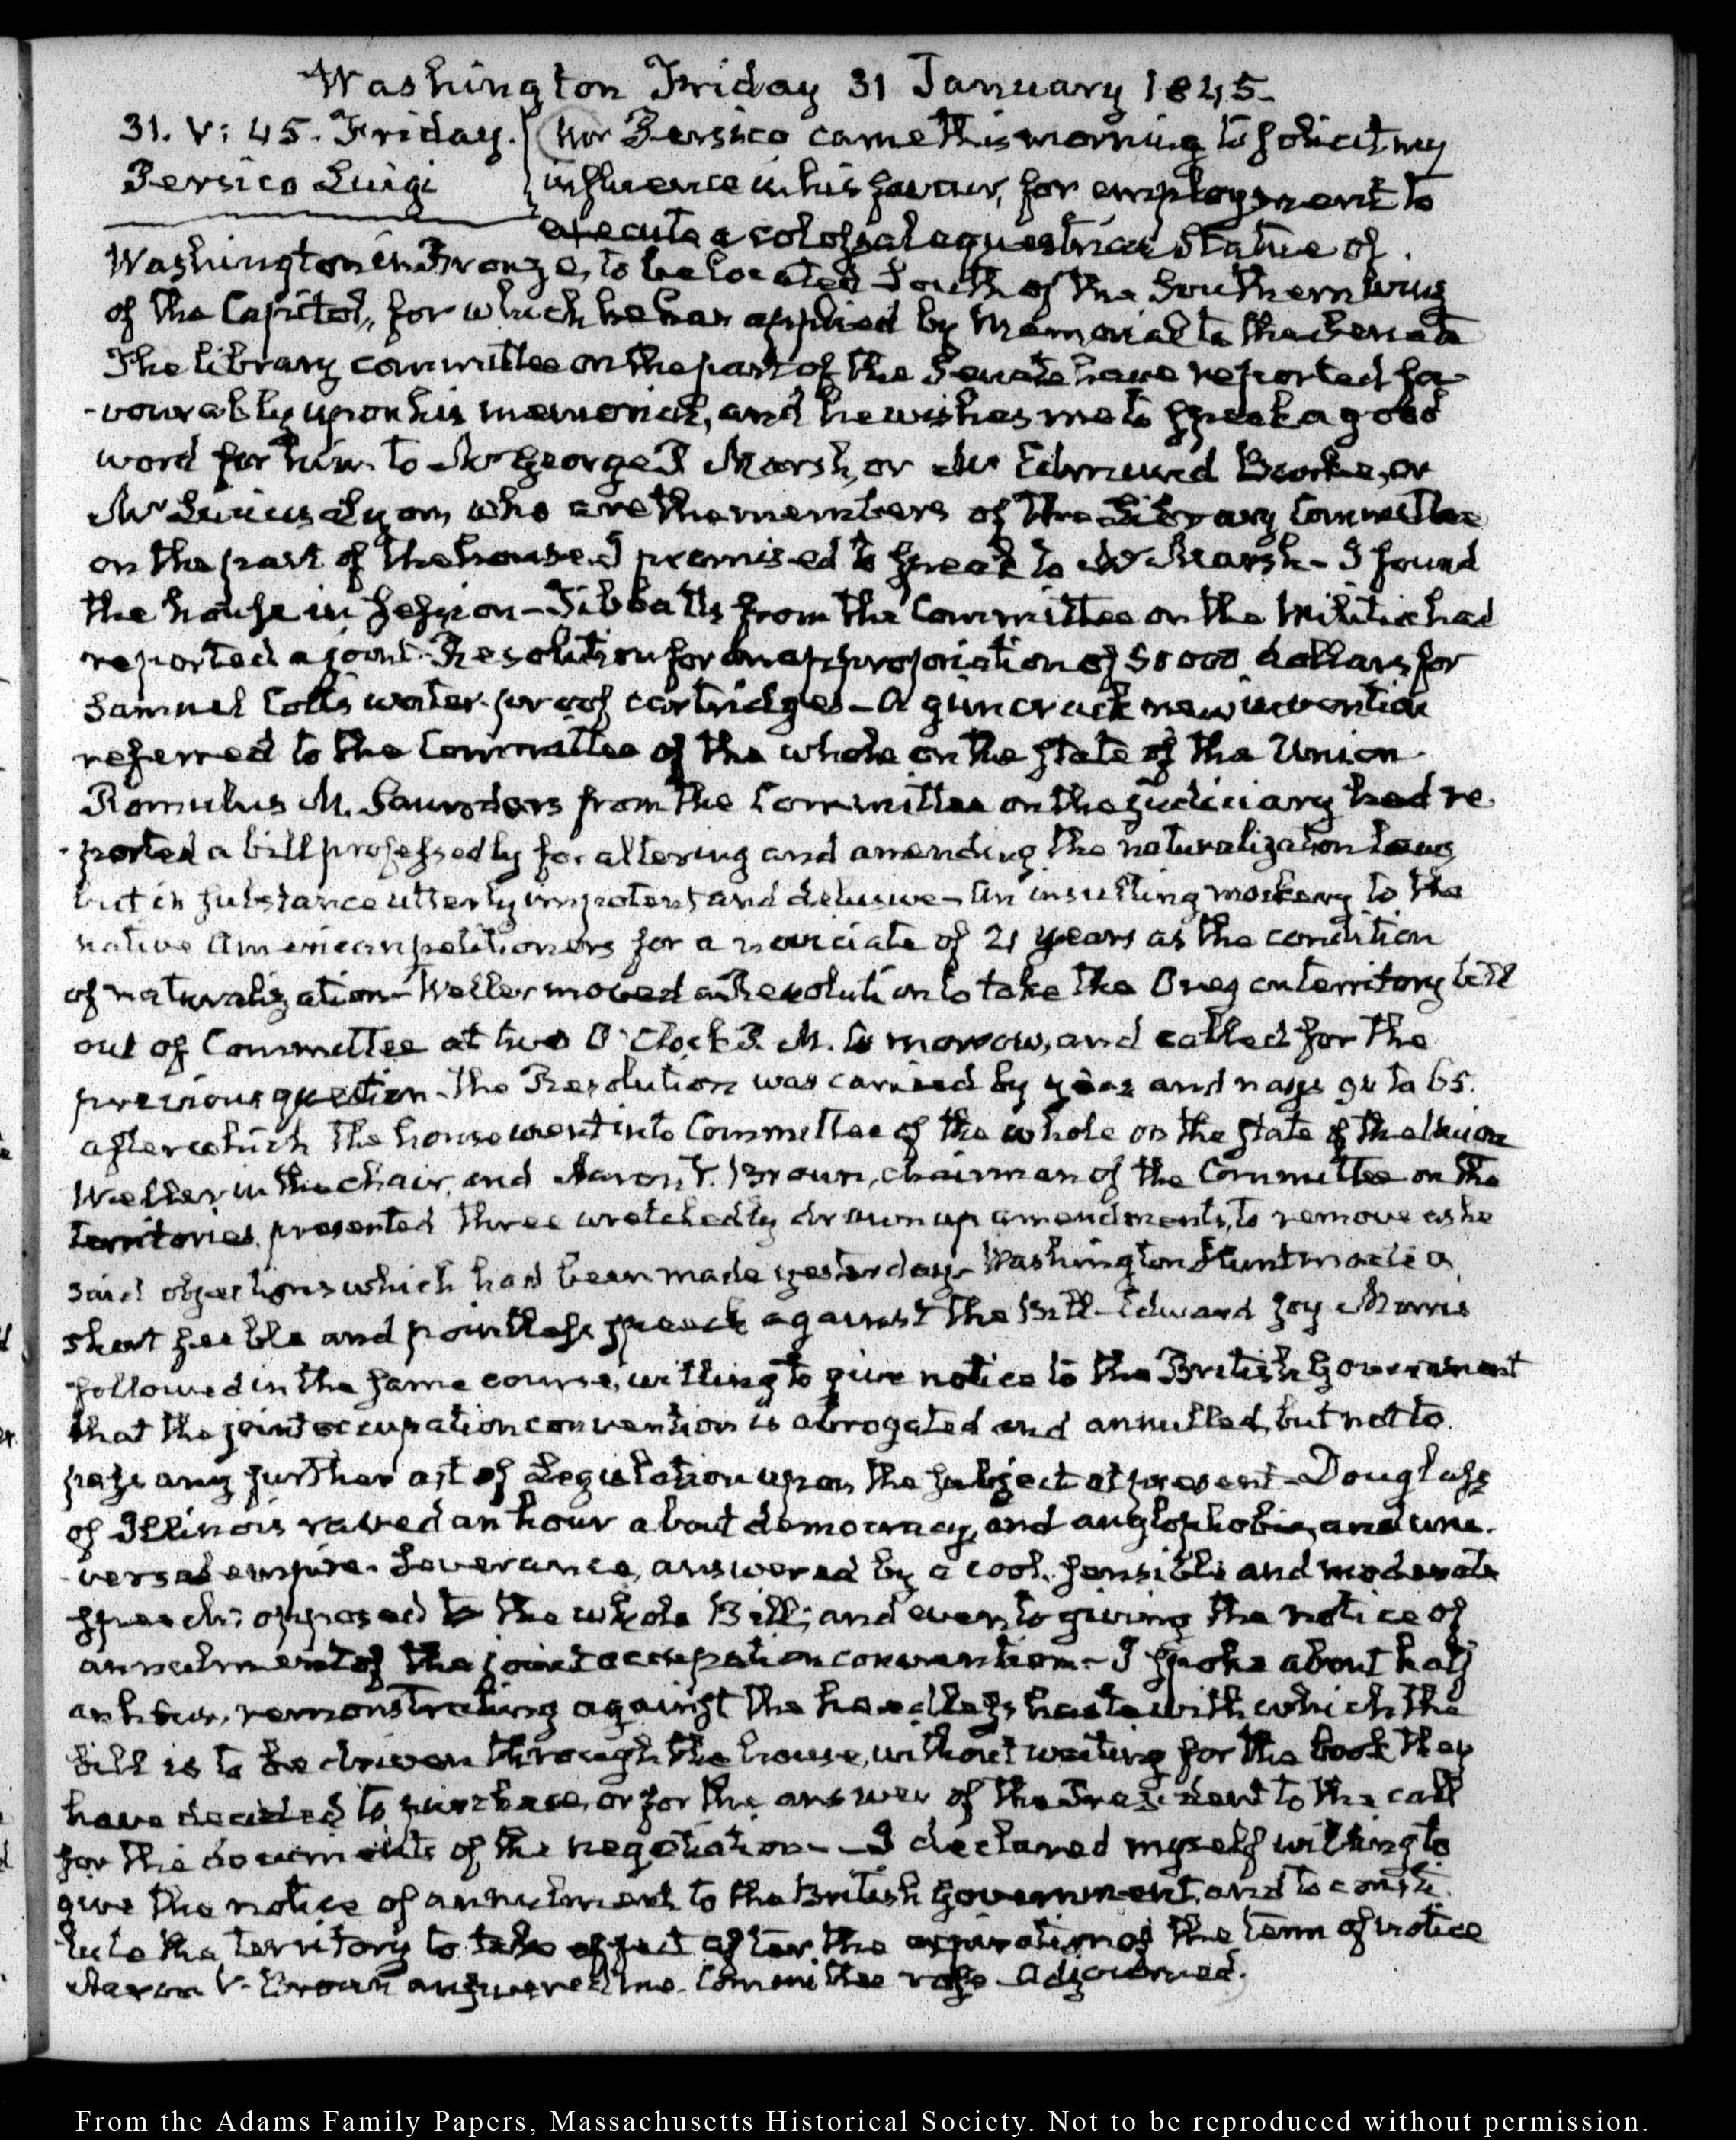 Washington Friday 31 January 1845.
31. V: 45. Friday.
Persico Luigi
Mr Persico came this morning to solicit my
influence in his favour, for employment to
execute a colossal equestrian Statue of
Washington in Bronze, to be located South of the Southern wing
of the Capitol, for which he has applied by Memorial to the Senate
The library committee on the part of the Senate have reported fa-
-vourably upon his memorial, and he wishes me to speak a good
word for him to Mr George P Marsh, or Mr Edmund Burke, or
Mr Lucius Lyon, who are the members of the Library Committee
on the part of the house. I promised to speak to Mr Marsh - I found
the house in session - Tibbatts from the Committee on the Militia had
reported a joint Resolution for an appropriation of 50000 dollars for
Samuel Colt's water-proof cartridges - a gimcrack new invention
referred to the Committee of the whole on the state of the Union
Romulus M. Saunders from the Committee on the judiciary had re
-ported a bill professedly for altering and amending the naturalization laws
but in substance utterly impotent and delusive - An insulting mockery to the
native American petitioners for a noviciate of 21 years as the condition
of naturalization - Weller moved a Resolution to take the Oregon territory bill
out of Committee at two O'Clock P. M. to morrow, and called for the
previous question - The Resolution was carried by yeas and nays to 65.
after which the house went into Committee of the whole on the state of the Union
Weller in the chair, and Aaron V. Brown, chairman of the Committee on the
Territories, presented three wretchedly drawn up amendments, to remove as he
said objections which had been made yesterday - Washington Hunt made a
short feeble and pointless speech against the Bill - Edward Joy Morris
followed in the same course, willing to give notice to the British Government
that the joint occupation convention is abrogated and annulled, but not to
pass any further act of Legislation upon the subject at present - Douglass
of Illinois raved an hour about democracy, and anglophobia, and uni-
-versal empire. Severance, answered by a cool, sensible and moderate
speech; opposed to the whole Bill; and even to giving the notice of
annulment of the joint occupation convention - I spoke about half
an hour, remonstrating against the headless haste with which the
bill is to be driven through the house, without waiting for the book they
have decided to purchase, or for the answer of the President to the call
for the documents of the negotiation - I declared myself willing to
give the notice of annulment to the British government, and to consti-
tute the territory to take effect after the expiration of the term of notice
Aaron V. Brown answered me. Committee rose - Adjourned.
From the Adams Family Papers, Massachusetts Historical Society. Not to be reproduced without permission.